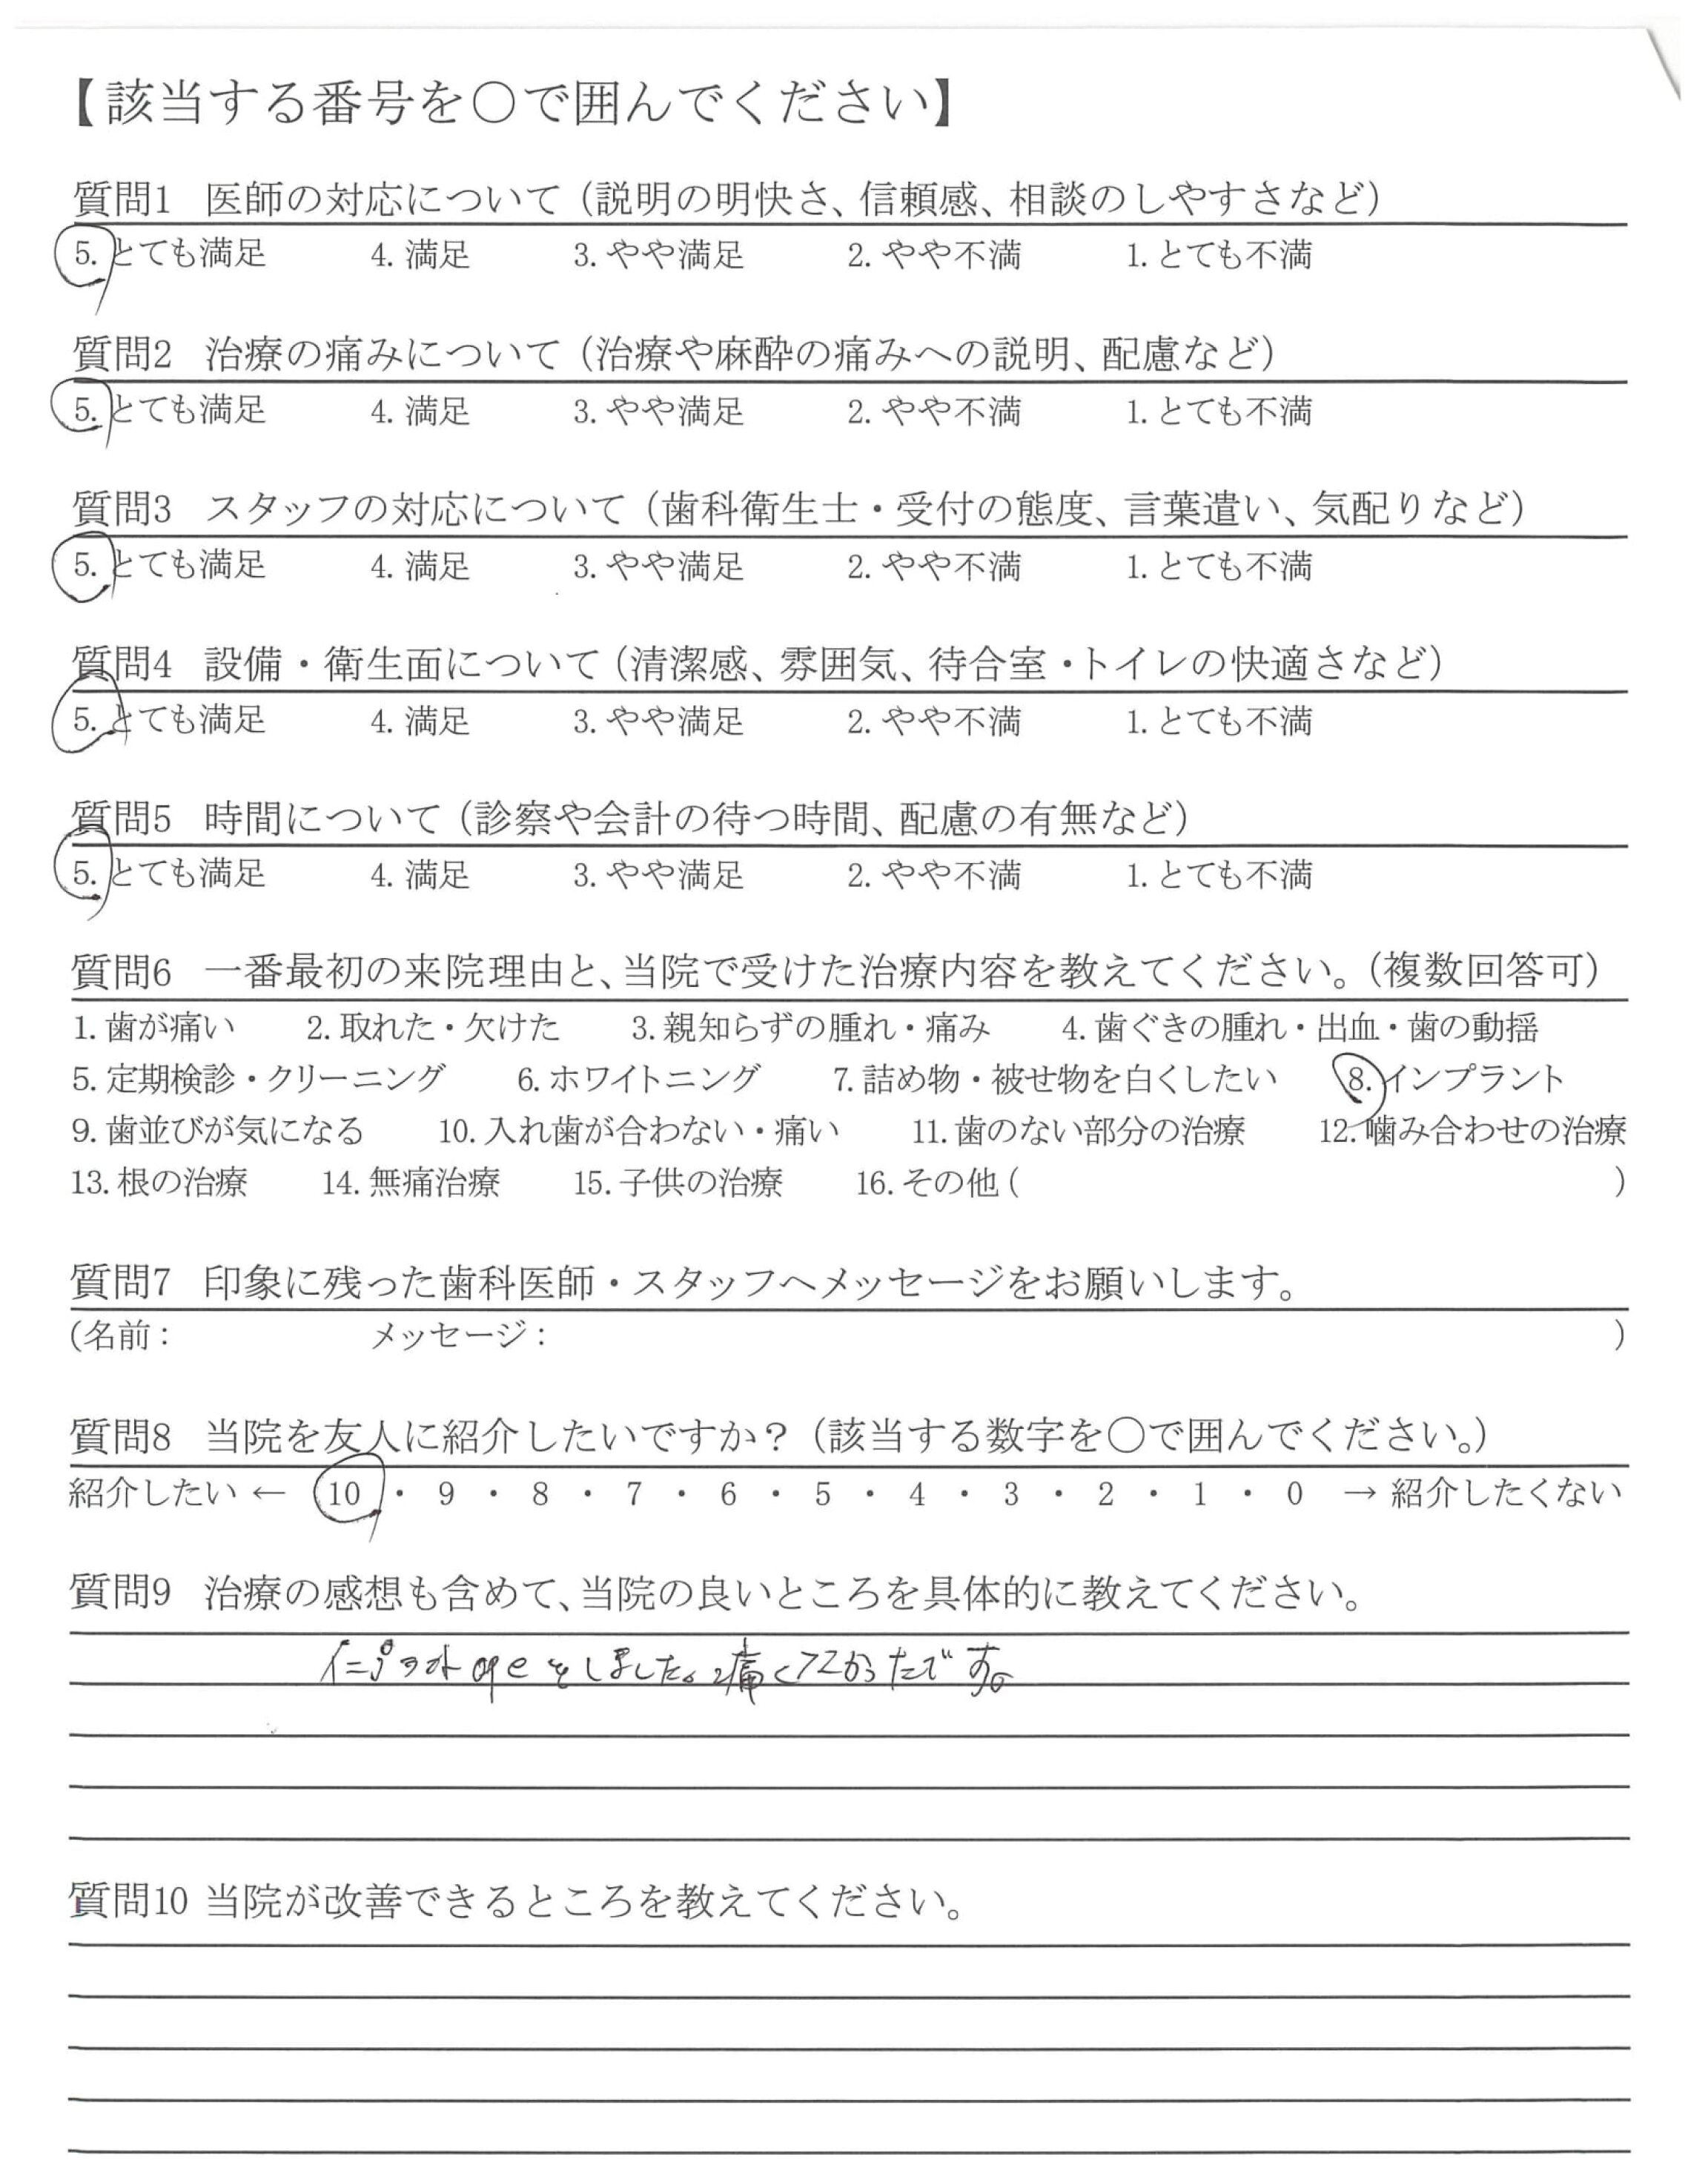 【該当する番号を○で囲んでください】
質問1 医師の対応について（説明の明快さ、信頼感、相談のしやすさなど）
5. とても満足 4. 満足 3. やや満足 2. やや不満 1. とても不満
質問2 治療の痛みについて（治療や麻酔の痛みへの説明、配慮など）
5. とても満足 4. 満足 3. やや満足 2. やや不満 1. とても不満
質問3 スタッフの対応について（歯科衛生士・受付の態度、言葉遣い、気配りなど）
5. とても満足 4. 満足 3. やや満足 2. やや不満 1. とても不満
質問4 設備・衛生面について（清潔感、雰囲気、待合室・トイレの快適さなど）
5. とても満足 4. 満足 3. やや満足 2. やや不満 1. とても不満
質問5 時間について（診察や会計の待つ時間、配慮の有無など）
5. とても満足 4. 満足 3. やや満足 2. やや不満 1. とても不満
質問6 一番最初の来院理由と、当院で受けた治療内容を教えてください。（複数回答可）
1. 歯が痛い 2. 取れた・欠けた 3. 親知らずの腫れ・痛み 4. 歯ぐきの腫れ・出血・歯の動揺
5. 定期検診・クリーニング 6. ホワイトニング 7. 詰め物・被せ物を白くしたい 8. インプラント
9. 歯並びが気になる 10. 入れ歯が合わない・痛い 11. 歯のない部分の治療 12. 噛み合わせの治療
13. 根の治療 14. 無痛治療 15. 子供の治療 16. その他 ( )
質問7 印象に残った歯科医師・スタッフへメッセージをお願いします。
(名前： メッセージ： )
質問8 当院を友人に紹介したいですか？（該当する数字を○で囲んでください。）
紹介したい ← 10 ・ 9 ・ 8 ・ 7 ・ 6 ・ 5 ・ 4 ・ 3 ・ 2 ・ 1 ・ 0 → 紹介したくない
質問9 治療の感想も含めて、当院の良いところを具体的に教えてください。
インプラント opeをしました。痛くなかったです。
質問10 当院が改善できるところを教えてください。